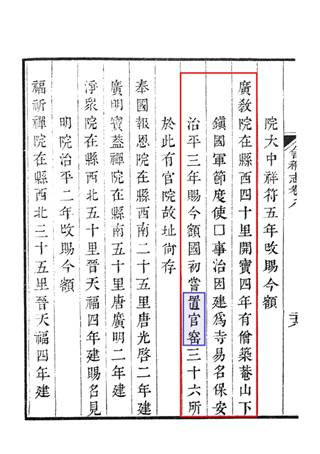 會稽志卷八
院大中祥符五年改賜今額
廣教院在縣西四十里開寶四年有僧築菴山下
鎮國軍節度使□事治因建爲寺易名保安
治平三年賜今額國初嘗置官窰三十六所
於此有官院故址尚存
奉國報恩院在縣西南二十五里唐光啓二年建
廣明寶蓋禪院在縣西北五十里唐廣明二年建
淨衆院在縣西北五十里晉天福四年建賜名見
明院治平二年改賜今額
福祈禪院在縣西北三十五里晉天福四年建